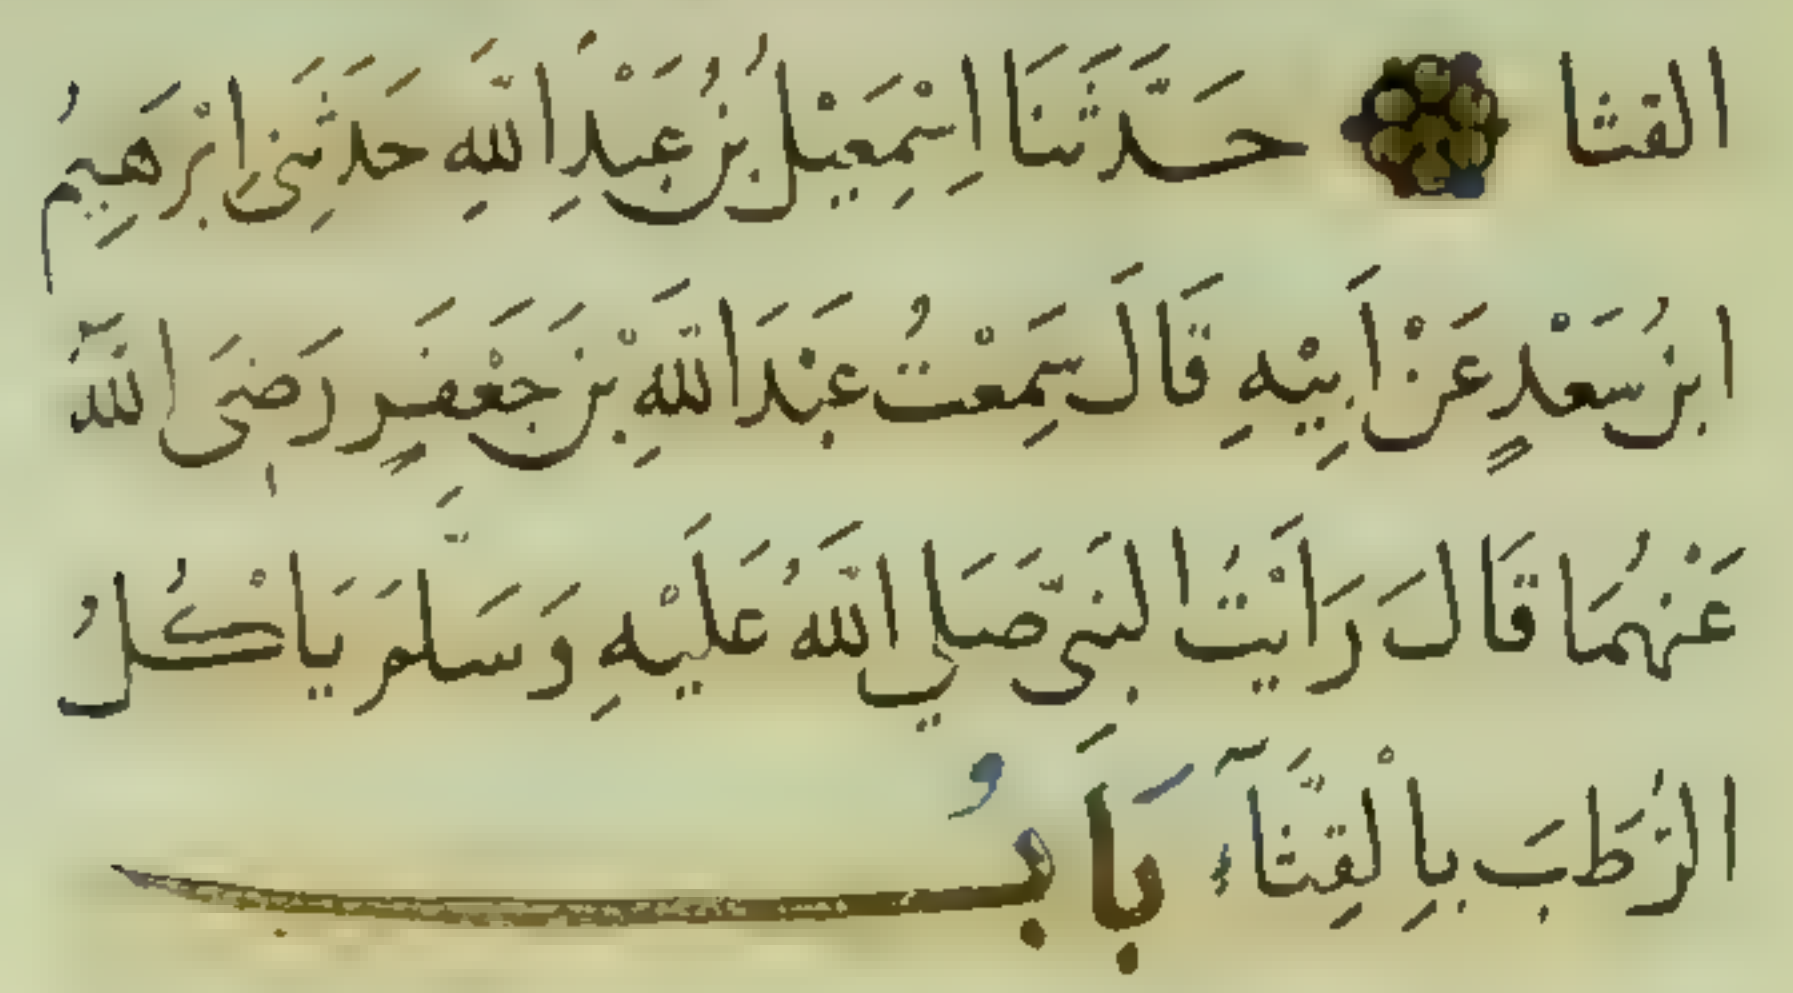 القثا حَدَّثَنَا اِسْمَعِيْلُ بْنُ عَبْدِ اللّٰهِ حَدَثَنِى اِبْرَهِيمُ
ابنُ سَعْدٍ عَنْ اَبِيْهِ قَالَ سَمِعْتُ عَبْدَ اللّٰهِ بْنَ جَعْفَرٍ رَضِىَ اللّٰهُ
عَنْهُمَا قَالَ رَاَيْتُ النَبِىَّ صَلَّي اللّٰهُ عَلَيْهِ وَسَلَّمَ يَاْكُلُ
الرُّطَبَ بِالْقِثَّآءِ بَابُ